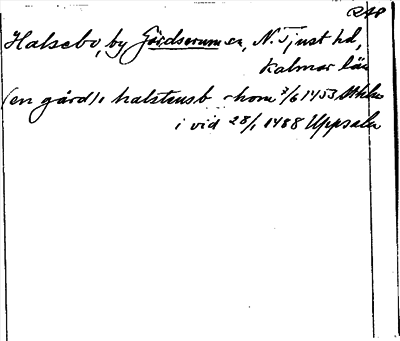 RAP
Halsebo, by Gärdserum sn, N. Tjust hd,
Kalmar län
(en gård) i halstensb - hom 3/6 1453 Sthlm
i vid 28/1 1488 Uppsala